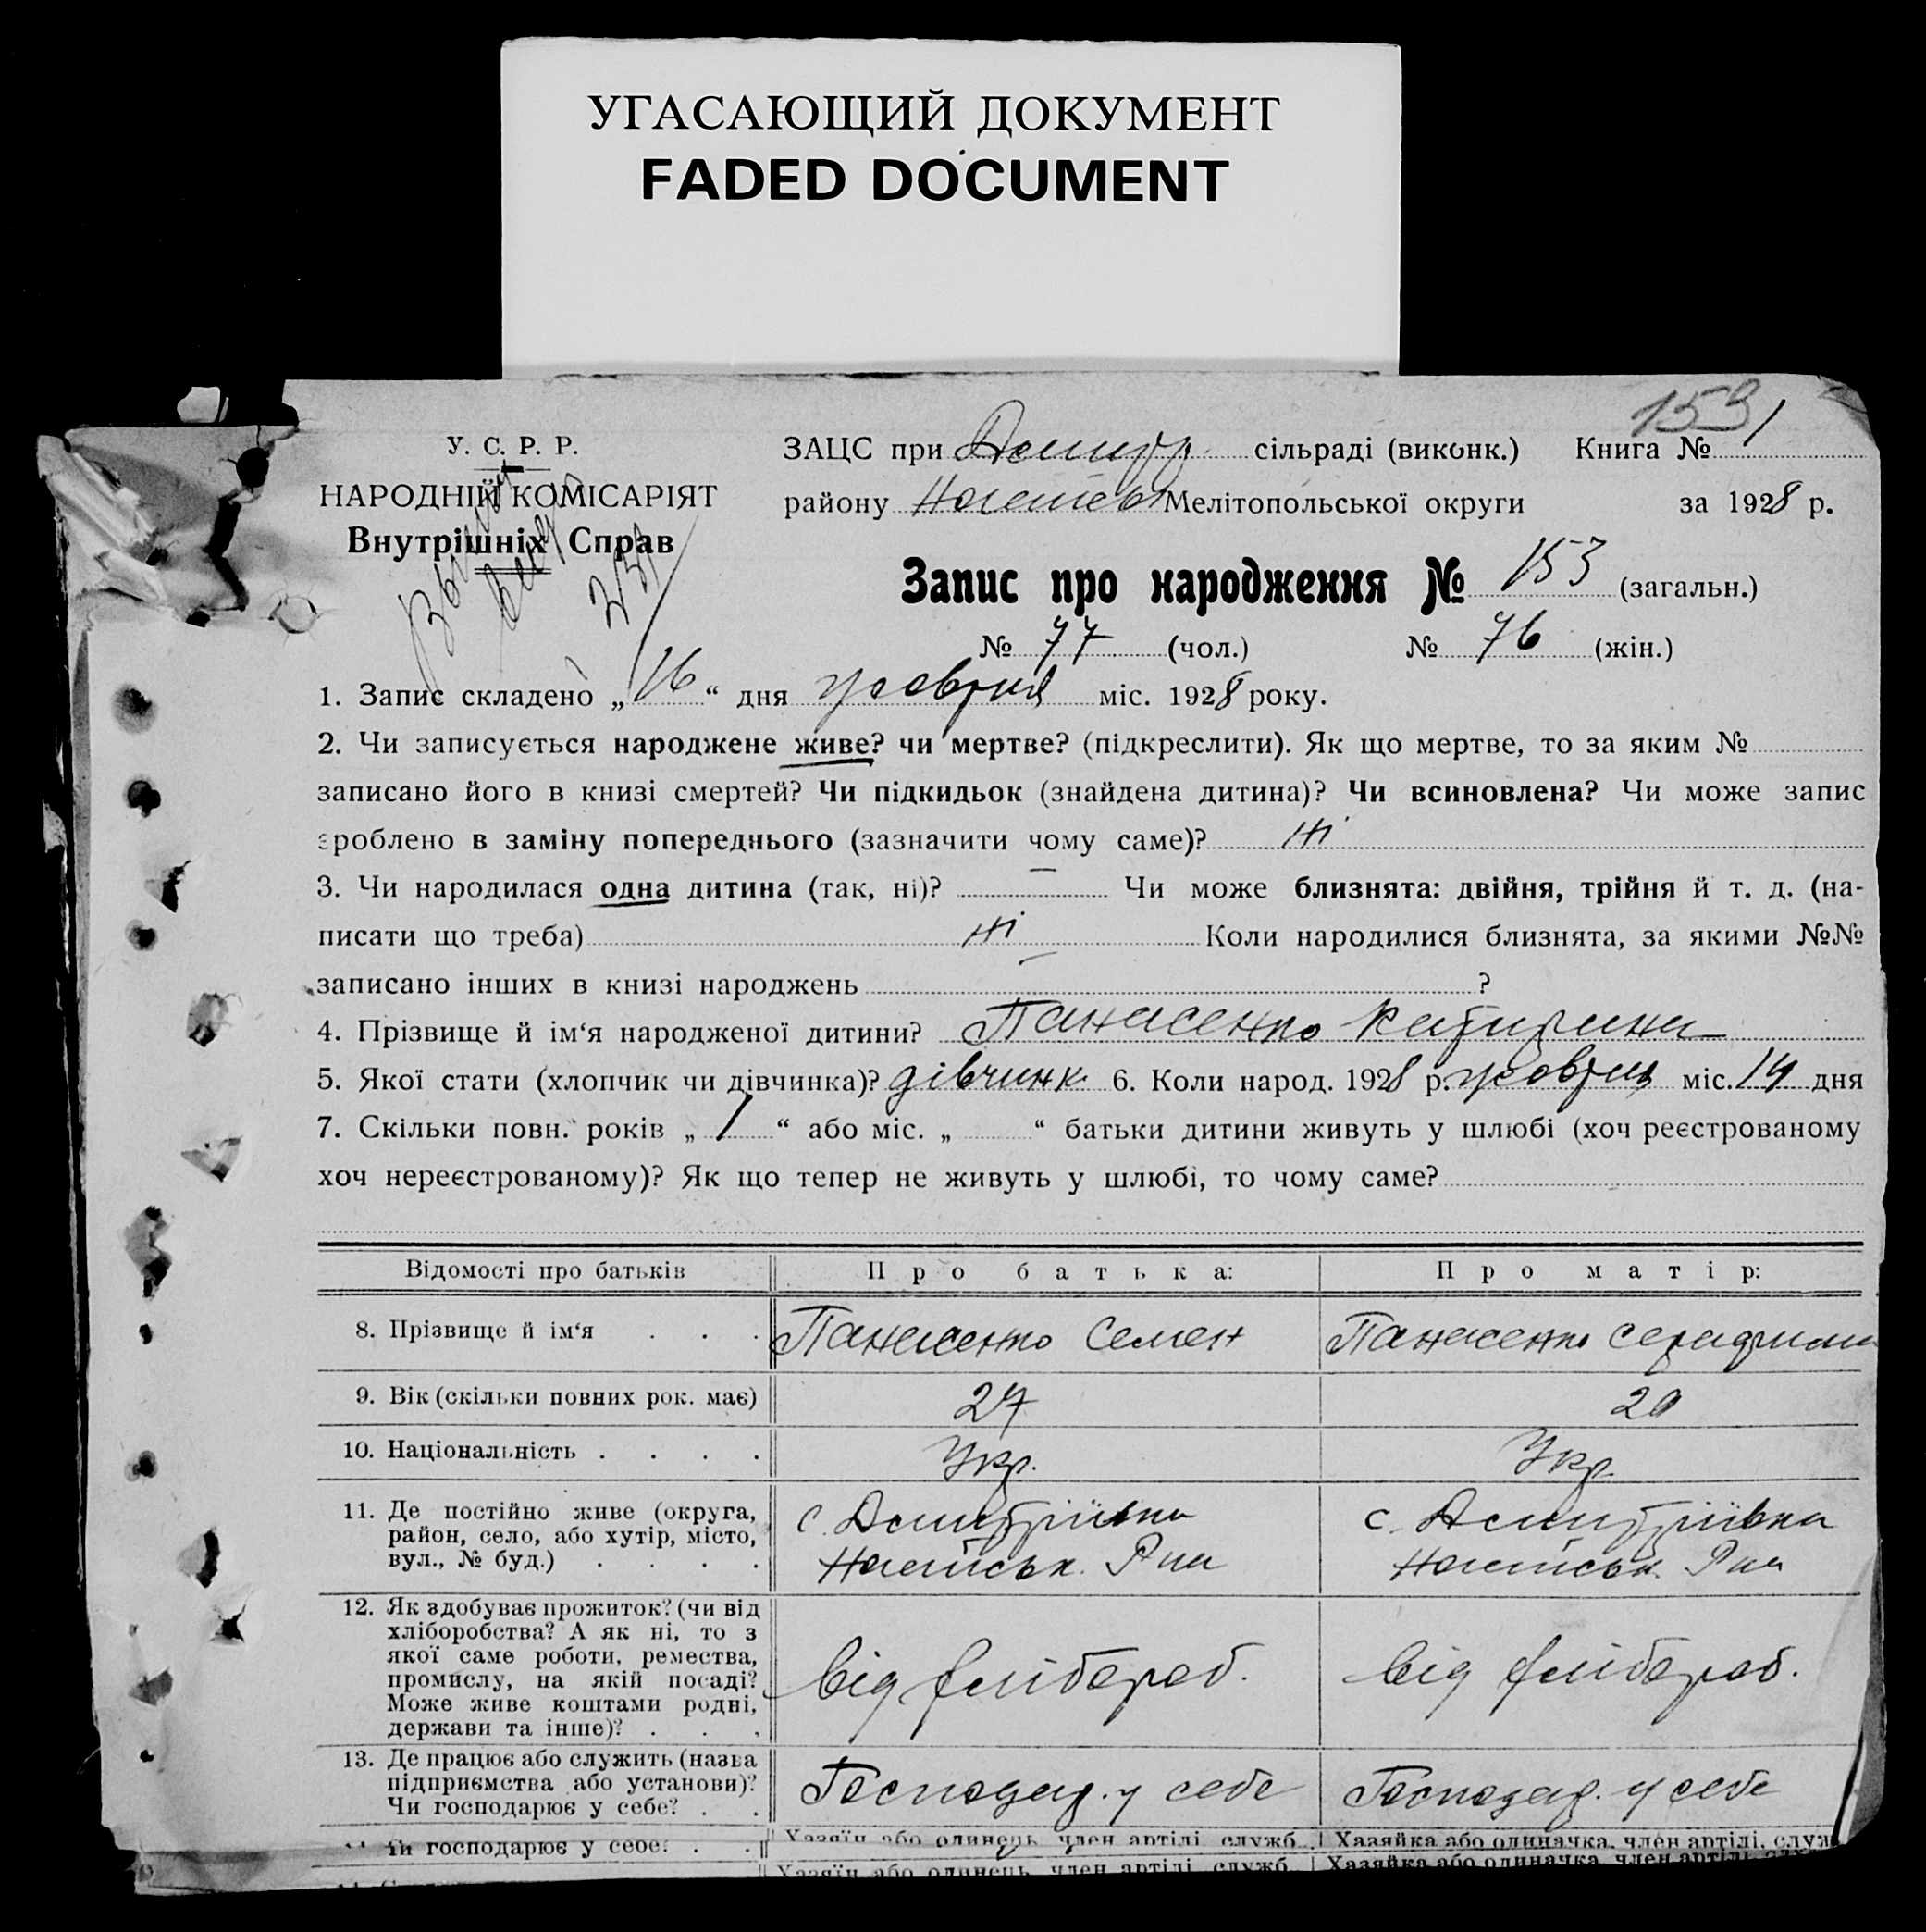 УГАСАЮЩИЙ ДОКУМЕНТ
FADED DOCUMENT
153
У. С. Р. Р.
НАРОДНІЙ КОМІСАРІЯТ
Внутрішніх Справ
ЗАЦС при сільраді (виконк.) Книга № 1
району Мелітопольської округи за 1928 р.
Запис про народження № 153 (загальн.)
№ 77 (чол.) № 76 (жін.)
1. Запис складено „16“ дня жовтня міс. 1928 року.
2. Чи записується народжене живе? чи мертве? (підкреслити). Як що мертве, то за яким №
записано його в книзі смертей? Чи підкидьок (знайдена дитина)? Чи всиновлена? Чи може запис
зроблено в заміну попереднього (зазначити чому саме)? Ні
3. Чи народилася одна дитина (так, ні)? Чи може близнята: двійня, трійня й т. д. (на-
писати що треба) ні Коли народилися близнята, за якими №№
записано інших в книзі народжень ?
4. Прізвище й ім‘я народженої дитини? Панасенко Катирина
5. Якої стати (хлопчик чи дівчинка)? дівчинк. 6. Коли народ. 1928 р. жовтня міс. 14 дня
7. Скільки повн. років „1“ або міс. „ “ батьки дитини живуть у шлюбі (хоч реєстрованому
хоч нереєстрованому)? Як що тепер не живуть у шлюбі, то чому саме?
Відомості про батьків Про батька: Про матір:
8. Прізвище й ім‘я . . . Панасенко Семен Панасенко Серафима
9. Вік (скільки повних рок. має) 27 20
10. Національність . . . . Укр. Укр.
11. Де постійно живе (округа,
район, село, або хутір, місто,
вул., № буд.) . . . .
с. Дмитріївка с. Дмитріївка
12. Як здобуває прожиток? (чи від
хліборобства? А як ні, то з
якої саме роботи, ремества,
промислу, на якій посаді?
Може живе коштами родні,
держави та інше)? . . .
від хлібороб. від хлібороб.
13. Де працює або служить (назва
підприємства або установи)?
Чи господарює у себе? . .
Господар. у себе Господар. у себе
Чи господарює у себе? . . Хазяїн або одинець, член артілі, служб. Хазяйка або одиначка, член артілі, служ
Хазяїн або одинець, член артілі, служб. Хазяйка або одиначка, член артілі